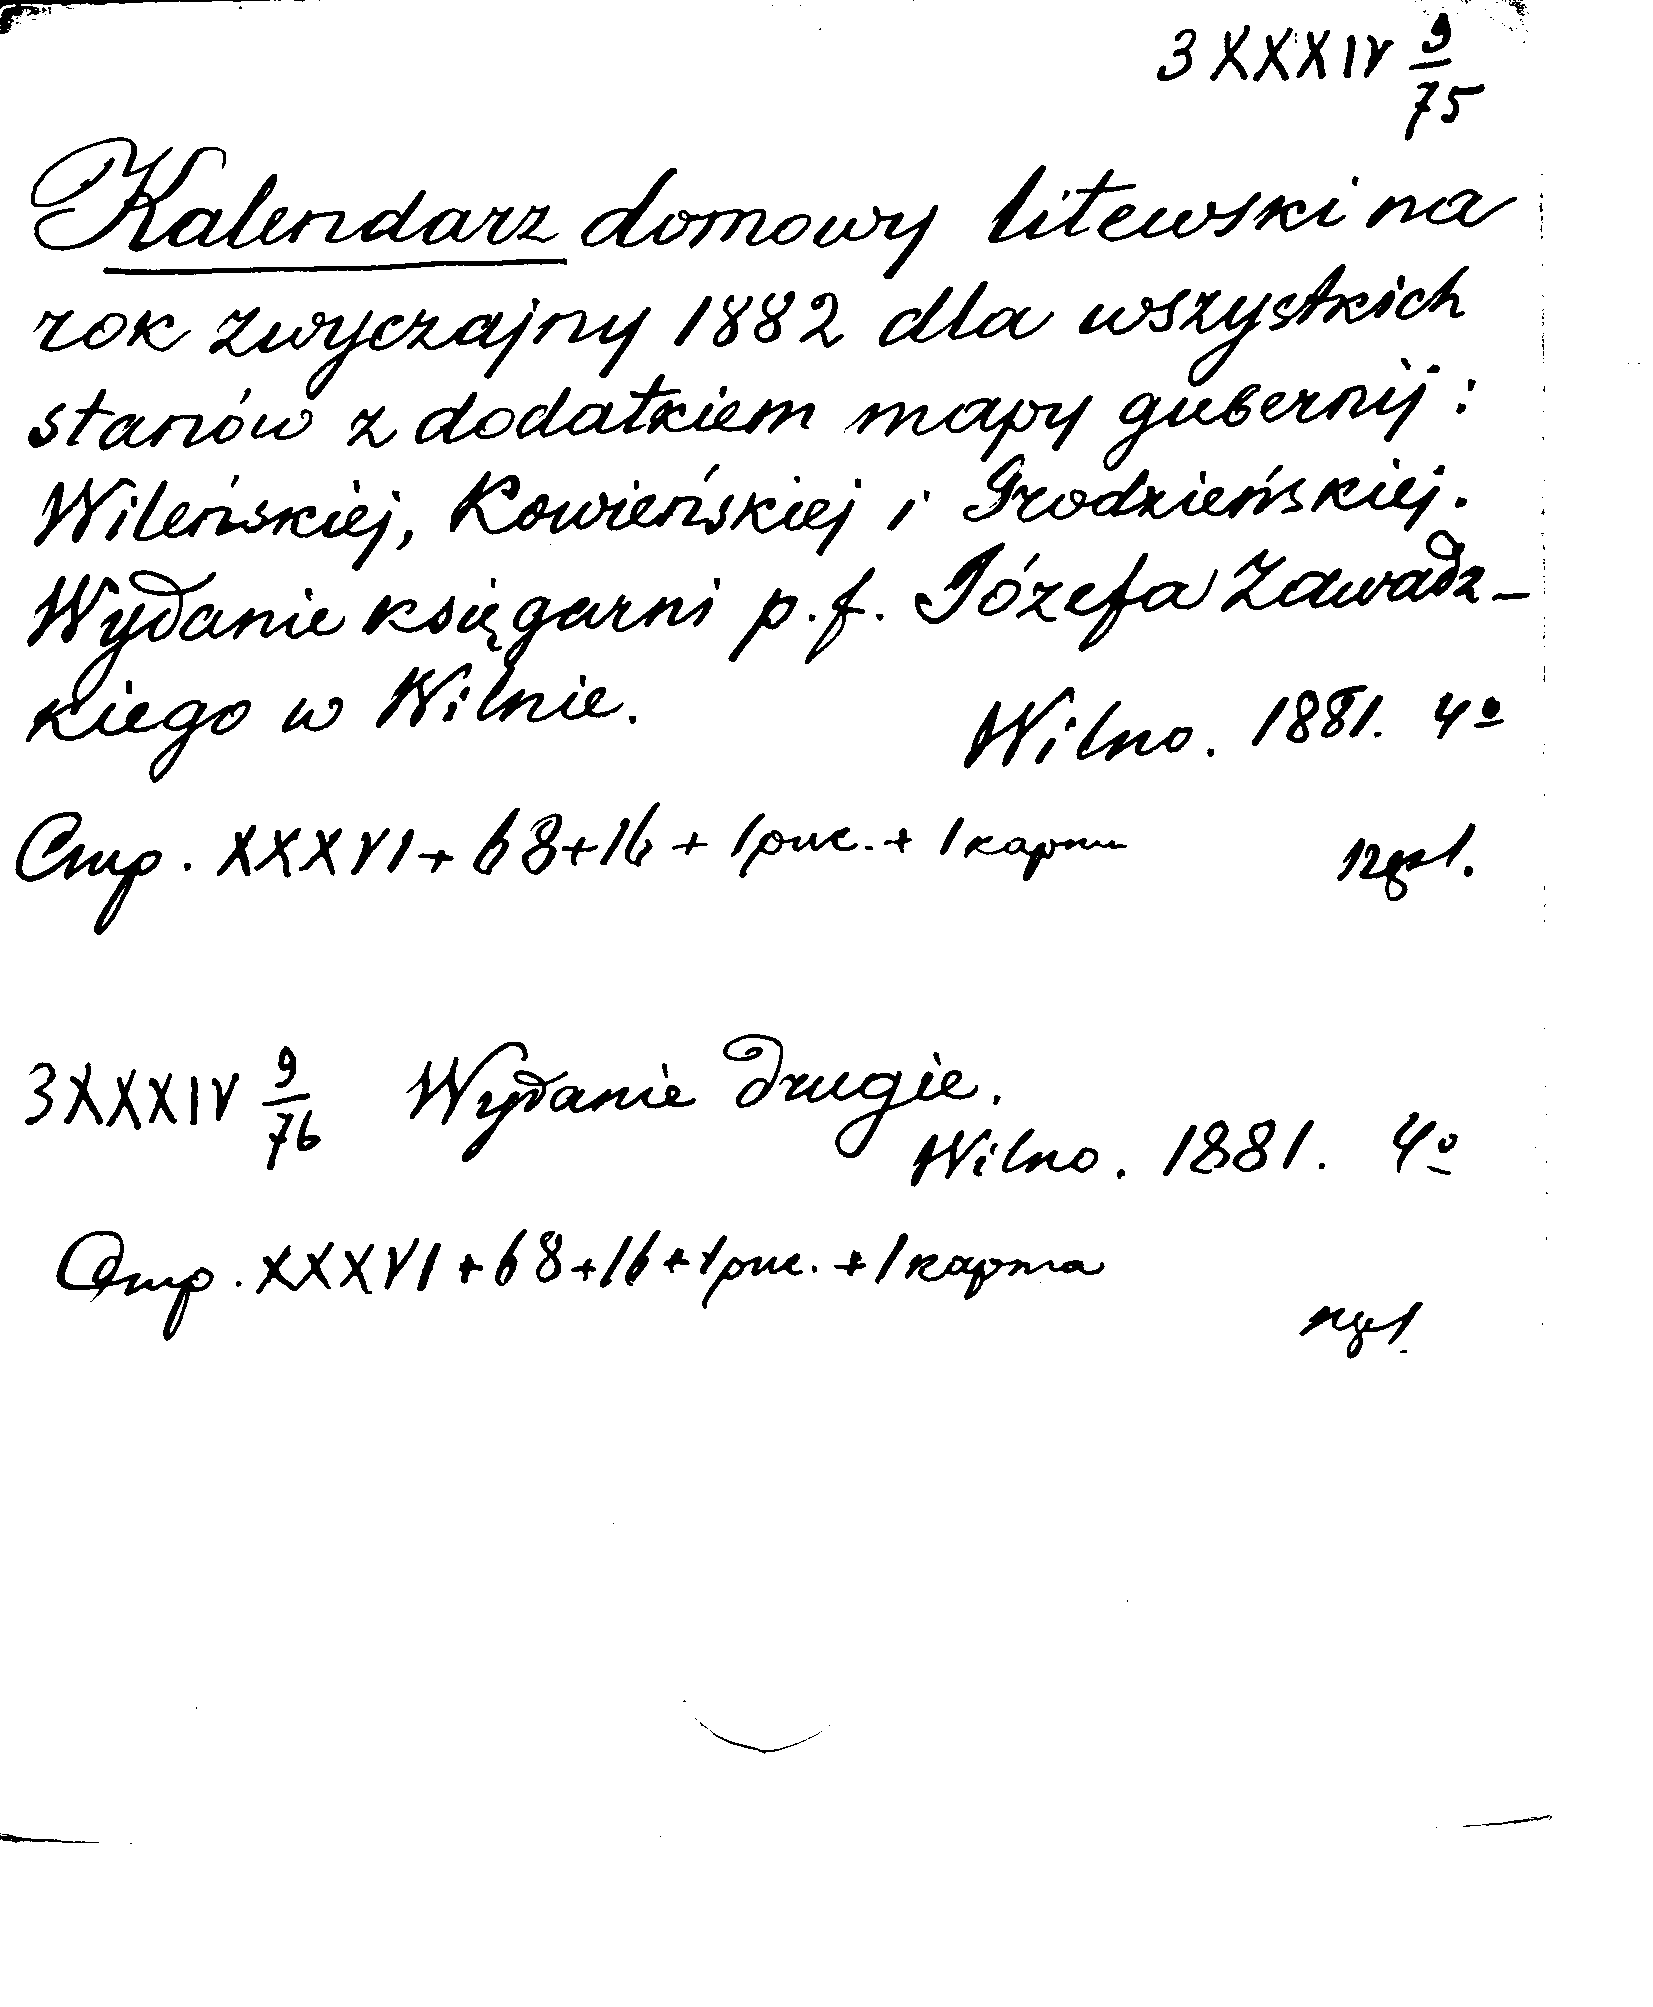 3 XXXIV 9/75
Kalendarz domowy litewski na
rok zwyczajny 1882 dla wszystkich
stanów z dodatkiem mapy gubernij:
Wileńskiej, Kowieńskiej i Grodzieńskiej.
Wydanie księgarni p.f. Józefa Zawadz-
kiego w Wilnie.
Wilno. 1881. 4º
Стр. XXXVI + 68 + 16 + 1 рис. + 1 карта
3 XXXIV 9/76 Wydanie drugie.
Wilno. 1881. 4º
Стр. XXXVI + 68 + 16 + 1 рис. + 1 карта